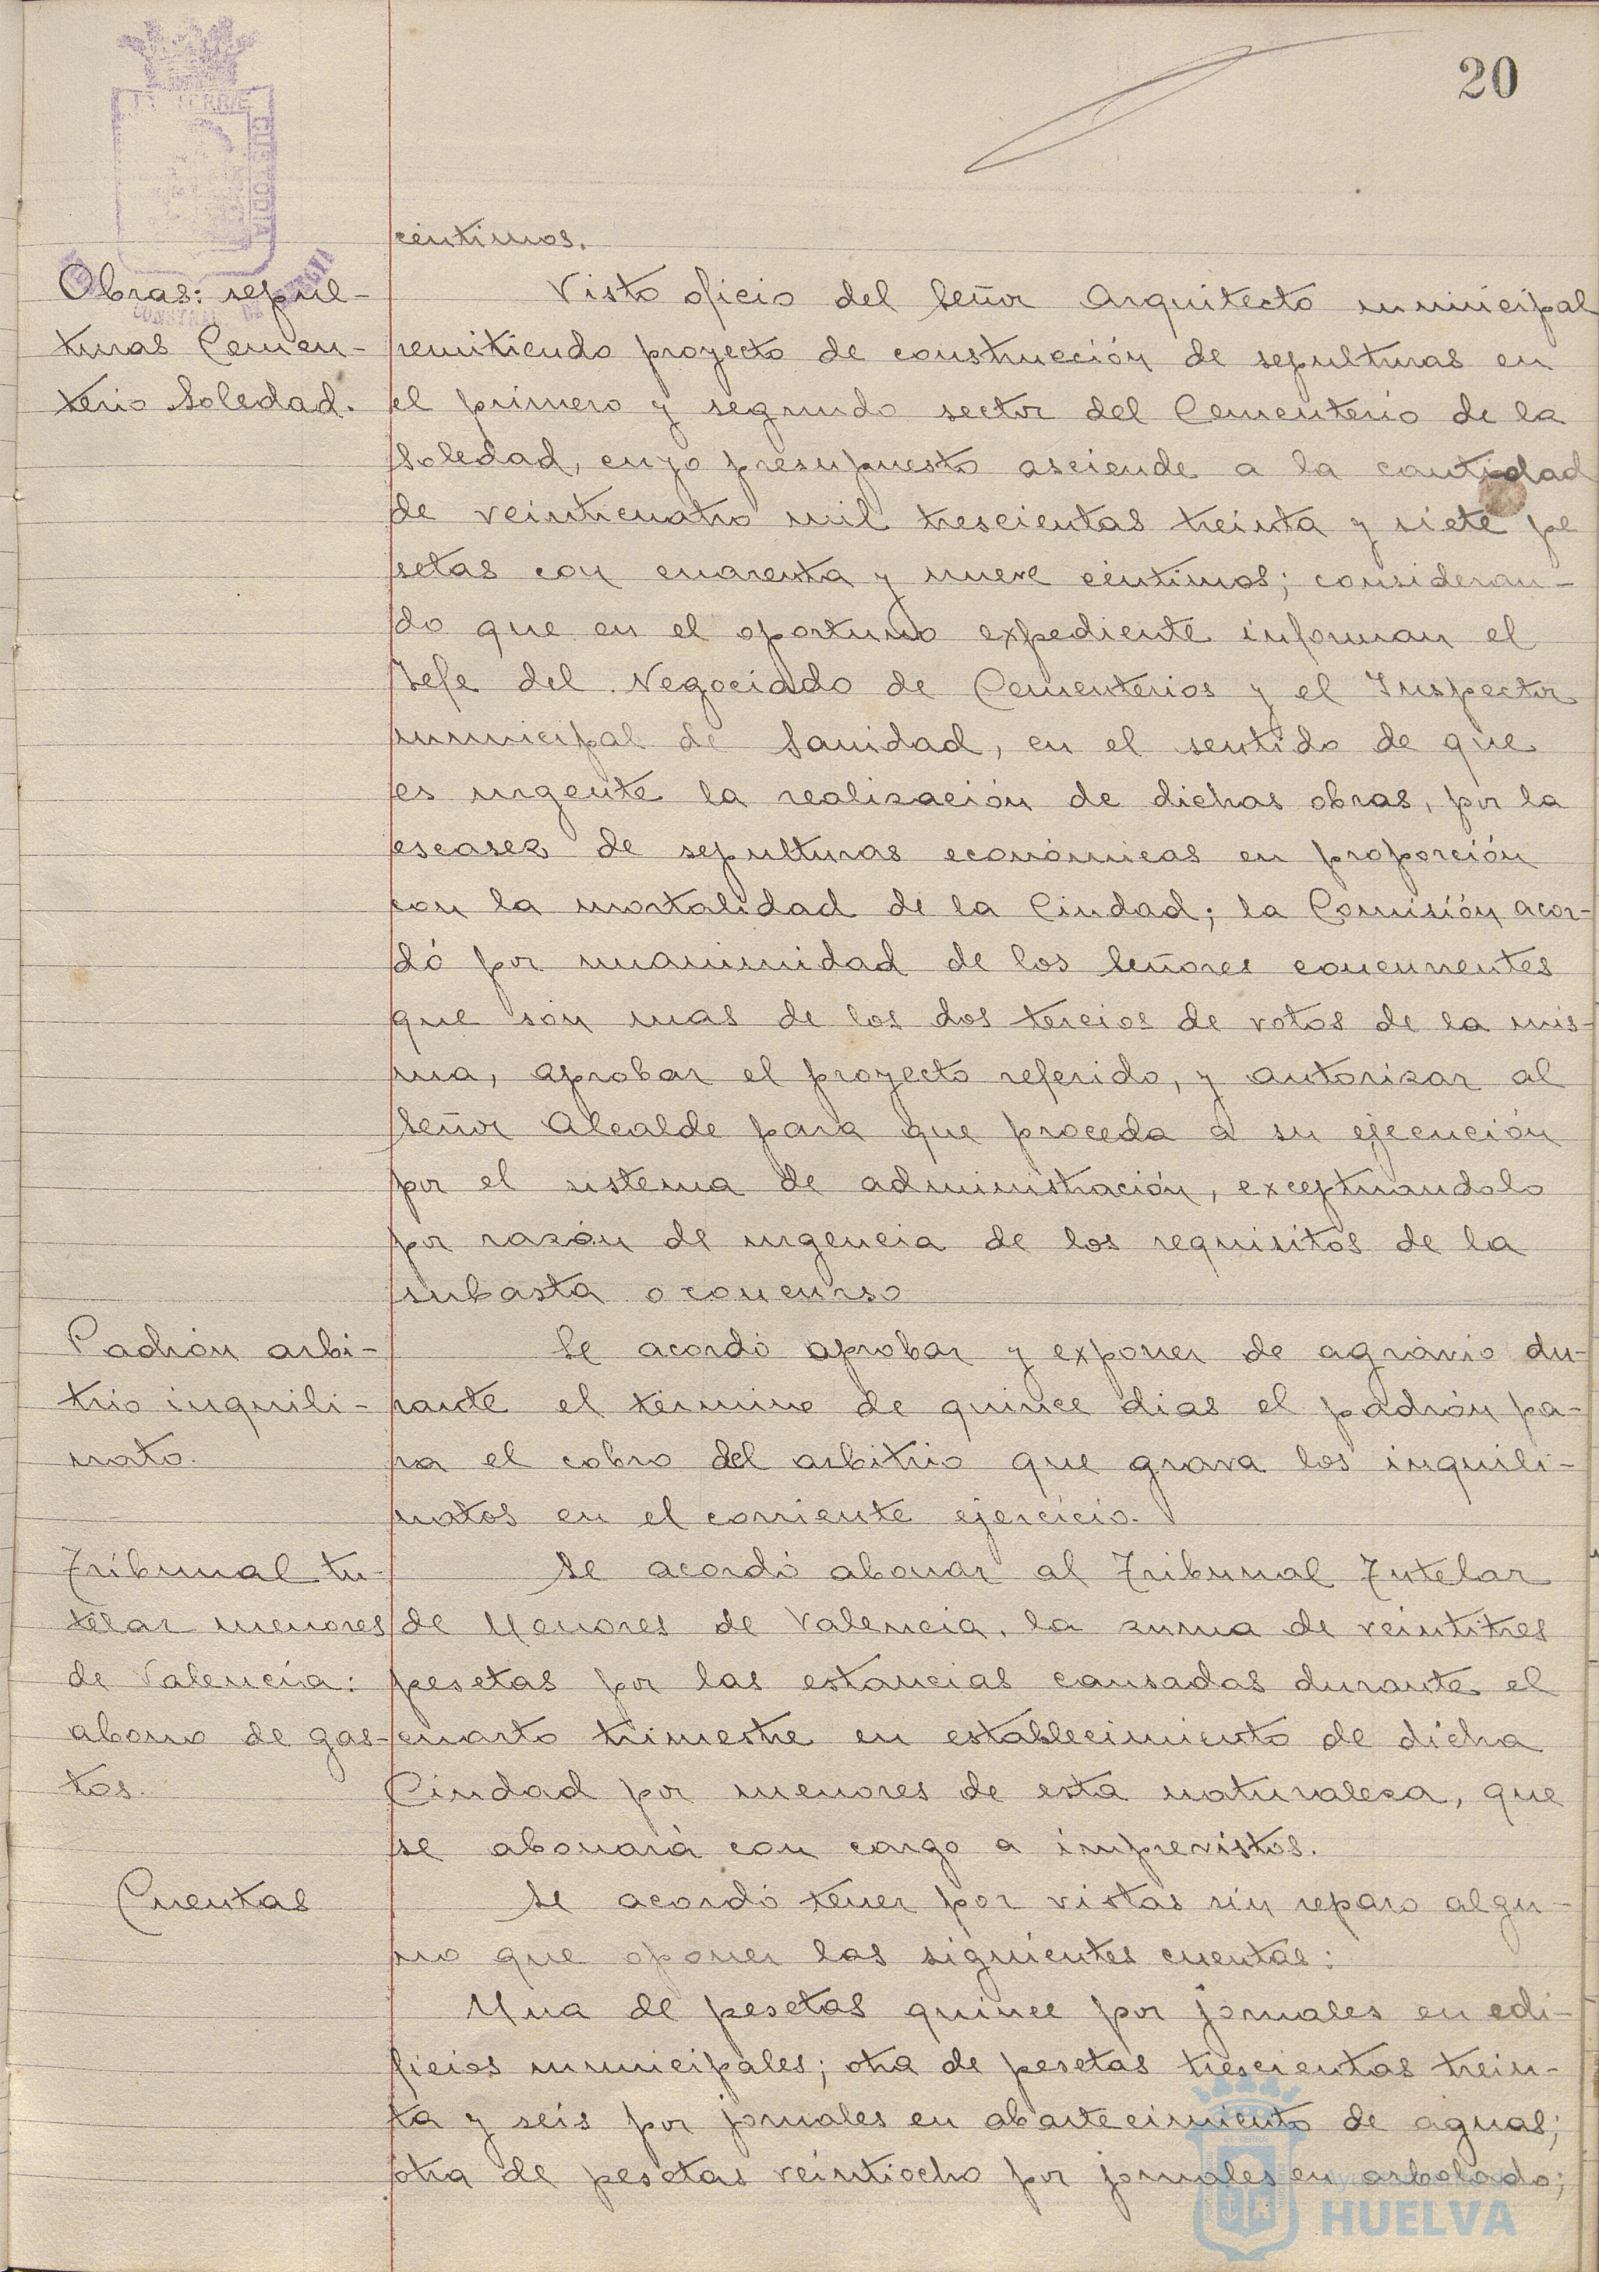 20
centimos.
Obras: sepul-
turas Cemen-
terio Soledad.
Visto oficio del Señor Arquitecto municipal
remitiendo proyecto de construcción de sepulturas en
el primero y segundo sector del Cementerio de la
Soledad, cuyo presupuesto asciende a la cantidad
de veinticuatro mil trescientas treinta y siete pe
setas con cuarenta y nueve céntimos; consideran-
do que en el oportuno expediente informan el
Jefe del Negociado de Cementerios y el Inspector
municipal de Sanidad, en el sentido de que
es urgente la realización de dichas obras, por la
escasez de sepulturas económicas en proporción
con la mortalidad de la Ciudad; la Comisión acor-
dó por unanimidad de los Señores concurrentes
que son mas de los dos tercios de votos de la mis-
ma, aprobar el proyecto referido, y autorizar al
Señor Alcalde para que proceda a su ejecución
por el sistema de administración, exceptuandolo
por razón de urgencia de los requisitos de la
subasta o concurso
Padrón arbi-
trio inquili-
nato.
Se acordó aprobar y exponer de agravio du-
rante el término de quince dias el padrón pa-
ra el cobro del arbitrio que grava los inquili-
natos en el corriente ejercicio.
Tribunal tu-
telar menores
de Valencia:
abono de gas-
tos.
Se acordó abonar al Tribunal Tutelar
de Menores de Valencia, la suma de veintitres
pesetas por las estancias causadas durante el
cuarto trimestre en establecimiento de dicha
Ciudad por menores de esta naturaleza, que
se abonará con cargo a imprevistos.
Cuentas
Se acordó tener por vistas sin reparo algu-
no que oponer las siguientes cuentas:
Una de pesetas quince por jornales en edi-
ficios municipales; otra de pesetas trescientas trein-
ta y seis por jornales en abastecimiento de aguas;
otra de pesetas veintiocho por jornales en arbolado;
HUELVA